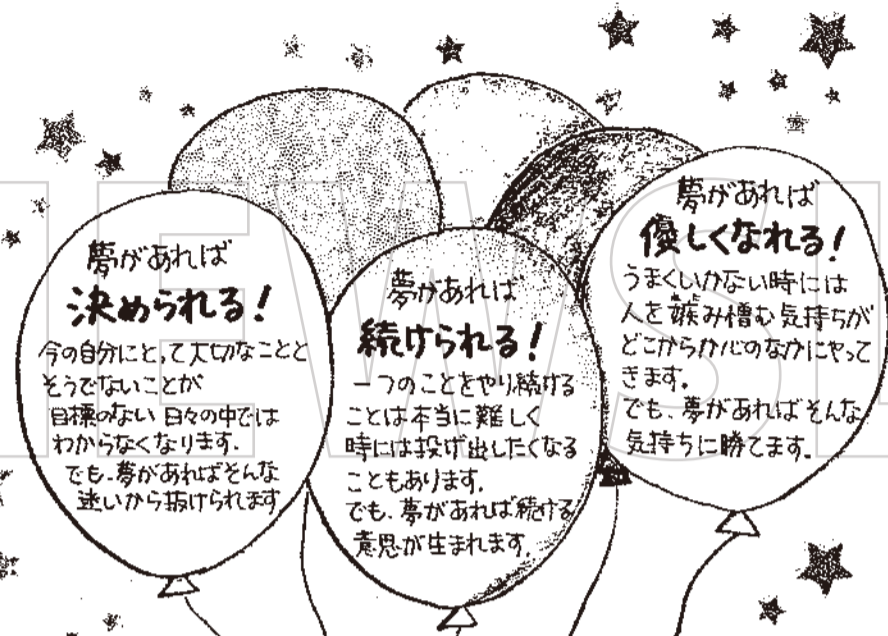 夢があれば
決められる!
今の自分にとって大切なことと
そうでないことが
目標のない日々の中では
わからなくなります.
でも、夢があればそんな
迷いから抜けられます
夢があれば
続けられる!
一つのことをやり続ける
ことは本当に難しく
時には投げ出したくなる
こともあります.
でも、夢があれば続ける
意思が生まれます.
夢があれば
優しくなれる!
うまくいかない時には
人を み憎む気持ちが
どこからか心のなかにやって
きます.
でも、夢があればそんな
気持ちに勝てます.